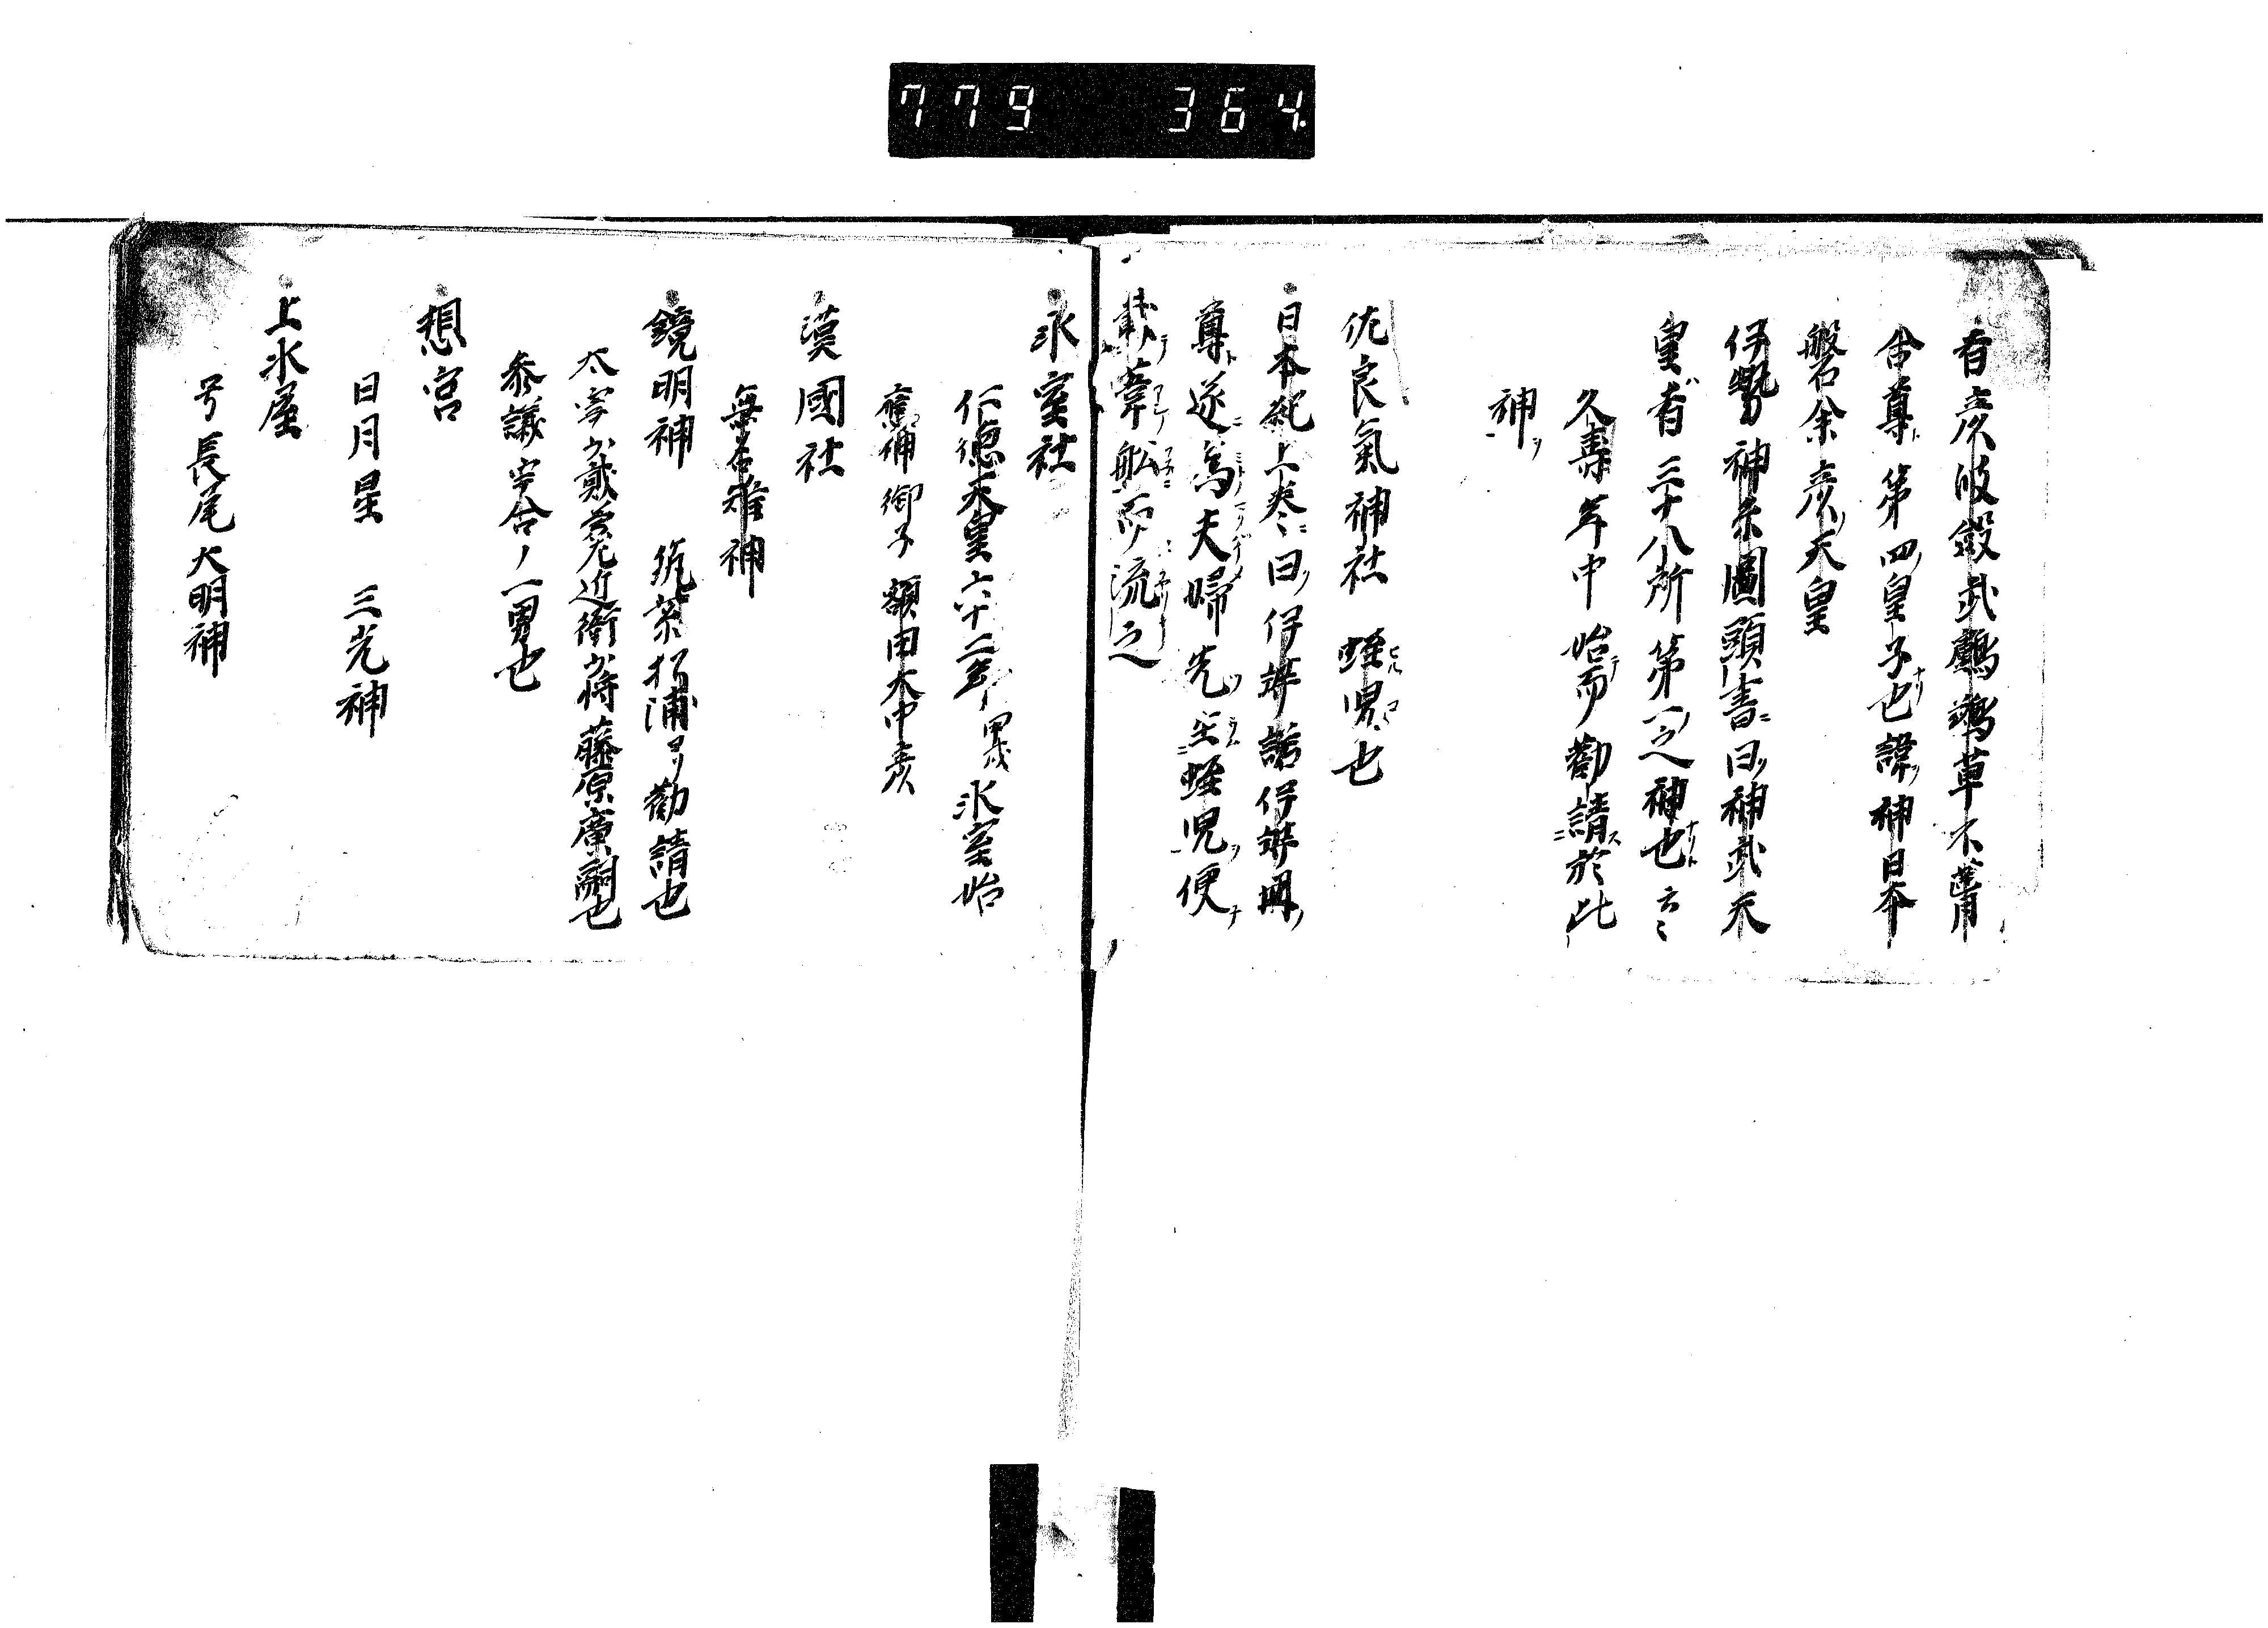 779 364
者彦波瀲武鸕鷀草不葺
合尊ト第四ノ皇子也ナリ諱ハ神日本
磐余彦ノ天皇
伊勢神系圖頭書ニ曰ク神武天
皇者ハ三十八所第一之神也ナリト云々
久壽年中始テ而勸請ス於此
神ヲ
佐良氣神社 蛭児ヒルコ也
日本紀上巻ニ曰ク伊弉諾伊弉冊ノ
尊ト遂ニ為夫婦先ツ生ニ蛭児ヲ便チ
載テ葦船ニ而流之
氷室社
仁徳天皇六十二年甲戌氷室始
應神御子額田大中彦
漢國社
無名雅神
鏡明神 筑紫松浦ヨリ勸請也
太宰少貳兼近衛少将藤原廣嗣也
参議宇合ノ一男也
想宮
日月星 三光神
上水屋
号長尾大明神